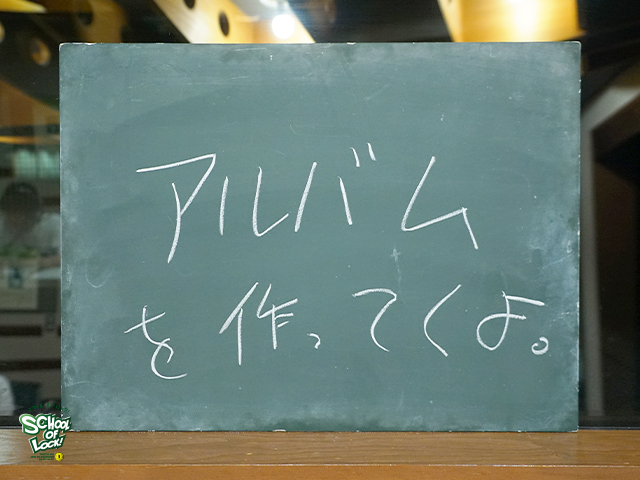 アルバム
を作ってくよ。
SCHOOL
OF
LOCK!